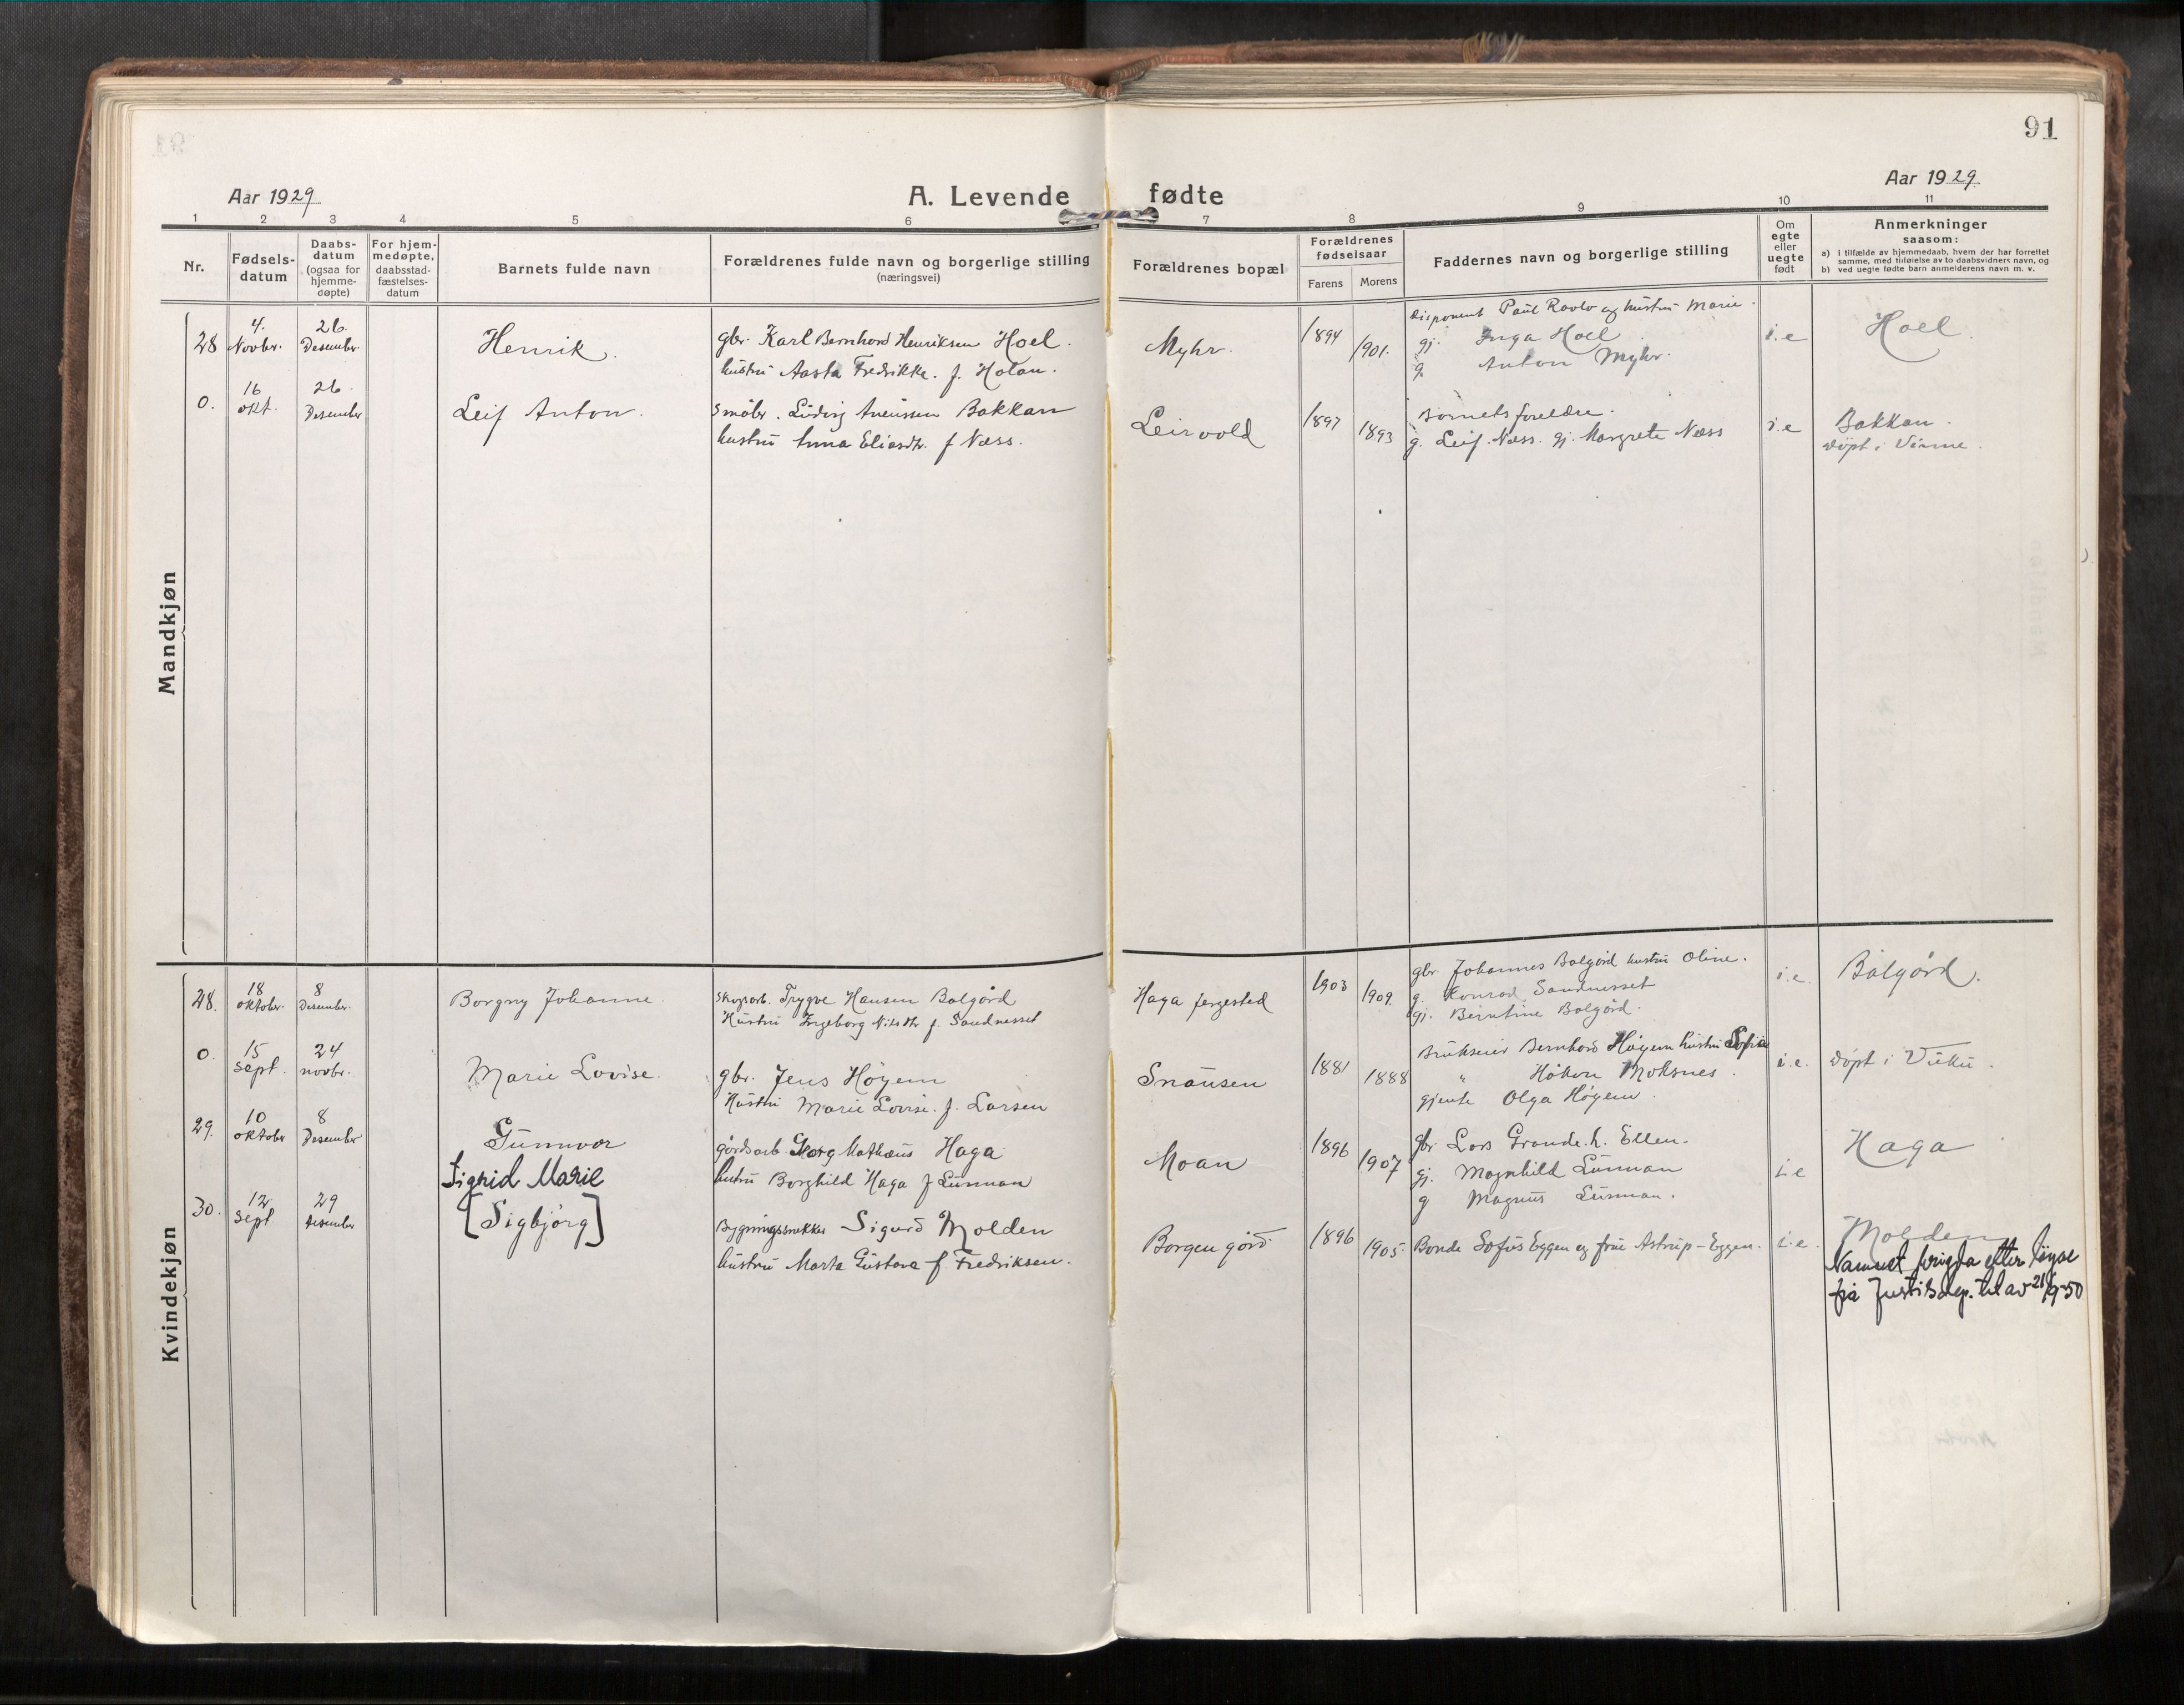 91
Aar 1929
A. Levende fødte
Aar 1929.
1 2 3 4 5 6 7 8 9 10 11
Nr.
Fødsels-
datum
Daabs-
datum
(ogsaa for
hjemme-
døpte)
For hjem-
medøpte,
daabsstad-
fæstelses-
datum
Barnets fulde navn
Forældrenes fulde navn og borgerlige stilling
(næringsvei)
Forældrenes bopæl
Forældrenes
fødselsaar
Farens Morens
Faddernes navn og borgerlige stilling
Om
egte
eller
uegte
født
Anmerkninger
saasom:
a) i tilfælde av hjemmedaab, hvem der har forrettet
samme, med tilføielse av to daabsvidners navn, og
b) ved uegte fødte barn anmelderens navn m. v.
Mandkjøn
28
4.
Novbr.
26.
Desember
Henrik.
gbr. Karl Bernhard Henriksen Hoel.
hustru Aasta Fredrikke. f. Holan.
Myhr.
1894
1901.
Disponent Paul Ravlo og hustru Marie.
gj. Inga Hoel
g. Anton Myhr.
i.e
Hoel.
0.
16
okt.
26.
Desember
Leif Anton.
Småbr. Ludvig Bakkan
hustru Anna Eliasdtr. f Næss.
Leirvold
1897
1893
Barnets foreldre.
g. Leif Næss. gj. Margrete Næss
i.e
Bakkan.
døpt i Vinne.
Kvindekjøn
28.
18
oktober.
8
Desember.
Borgny Johanne.
Trygve Hansen Balgård
Hustru Ingeborg Nilsdtr f. Sandnesset
Haga fergested
1903
1909.
gbr. Johannes Balgård hustru Oline.
g. Konrad Sandnesset
gj. Berntine Balgård.
i.e.
Balgård.
0.
15
Sept.
24
novbr.
Marie Lovise.
gbr. Jens Høyem
Hustru Marie Lovise. f. Larsen
Snausen
1881
1888
Brukseier Bernhard Høyem hustru Sofie
" Håkon Moksnes.
gjente Olga Høyem.
i.e.
døpt i Vuku.
29.
10
oktober
8
Desember
Gunnvor
gårdsarb. Georg Mathæus Haga
hustru Borghild Haga f Lunnan
Moan
1896
1907
gbr. Lars Grande. h. Ellen.
gj. Magnhild Lunnan
g Magnus Lunnan.
i.e
Haga
30.
12
Sept
29
Desember
Sigrid Marie
[Sigbjørg]
Bygningssnekker Sigurd Molden
hustru Marta Gustava f Fredriksen.
Borgen gård.
1896
1905.
Bonde Sofus Eggen og frue Astrup-Eggen.
i.e.
Molden
Namnet brigda etter løyve
frå Justisdep. til av 21/9-50